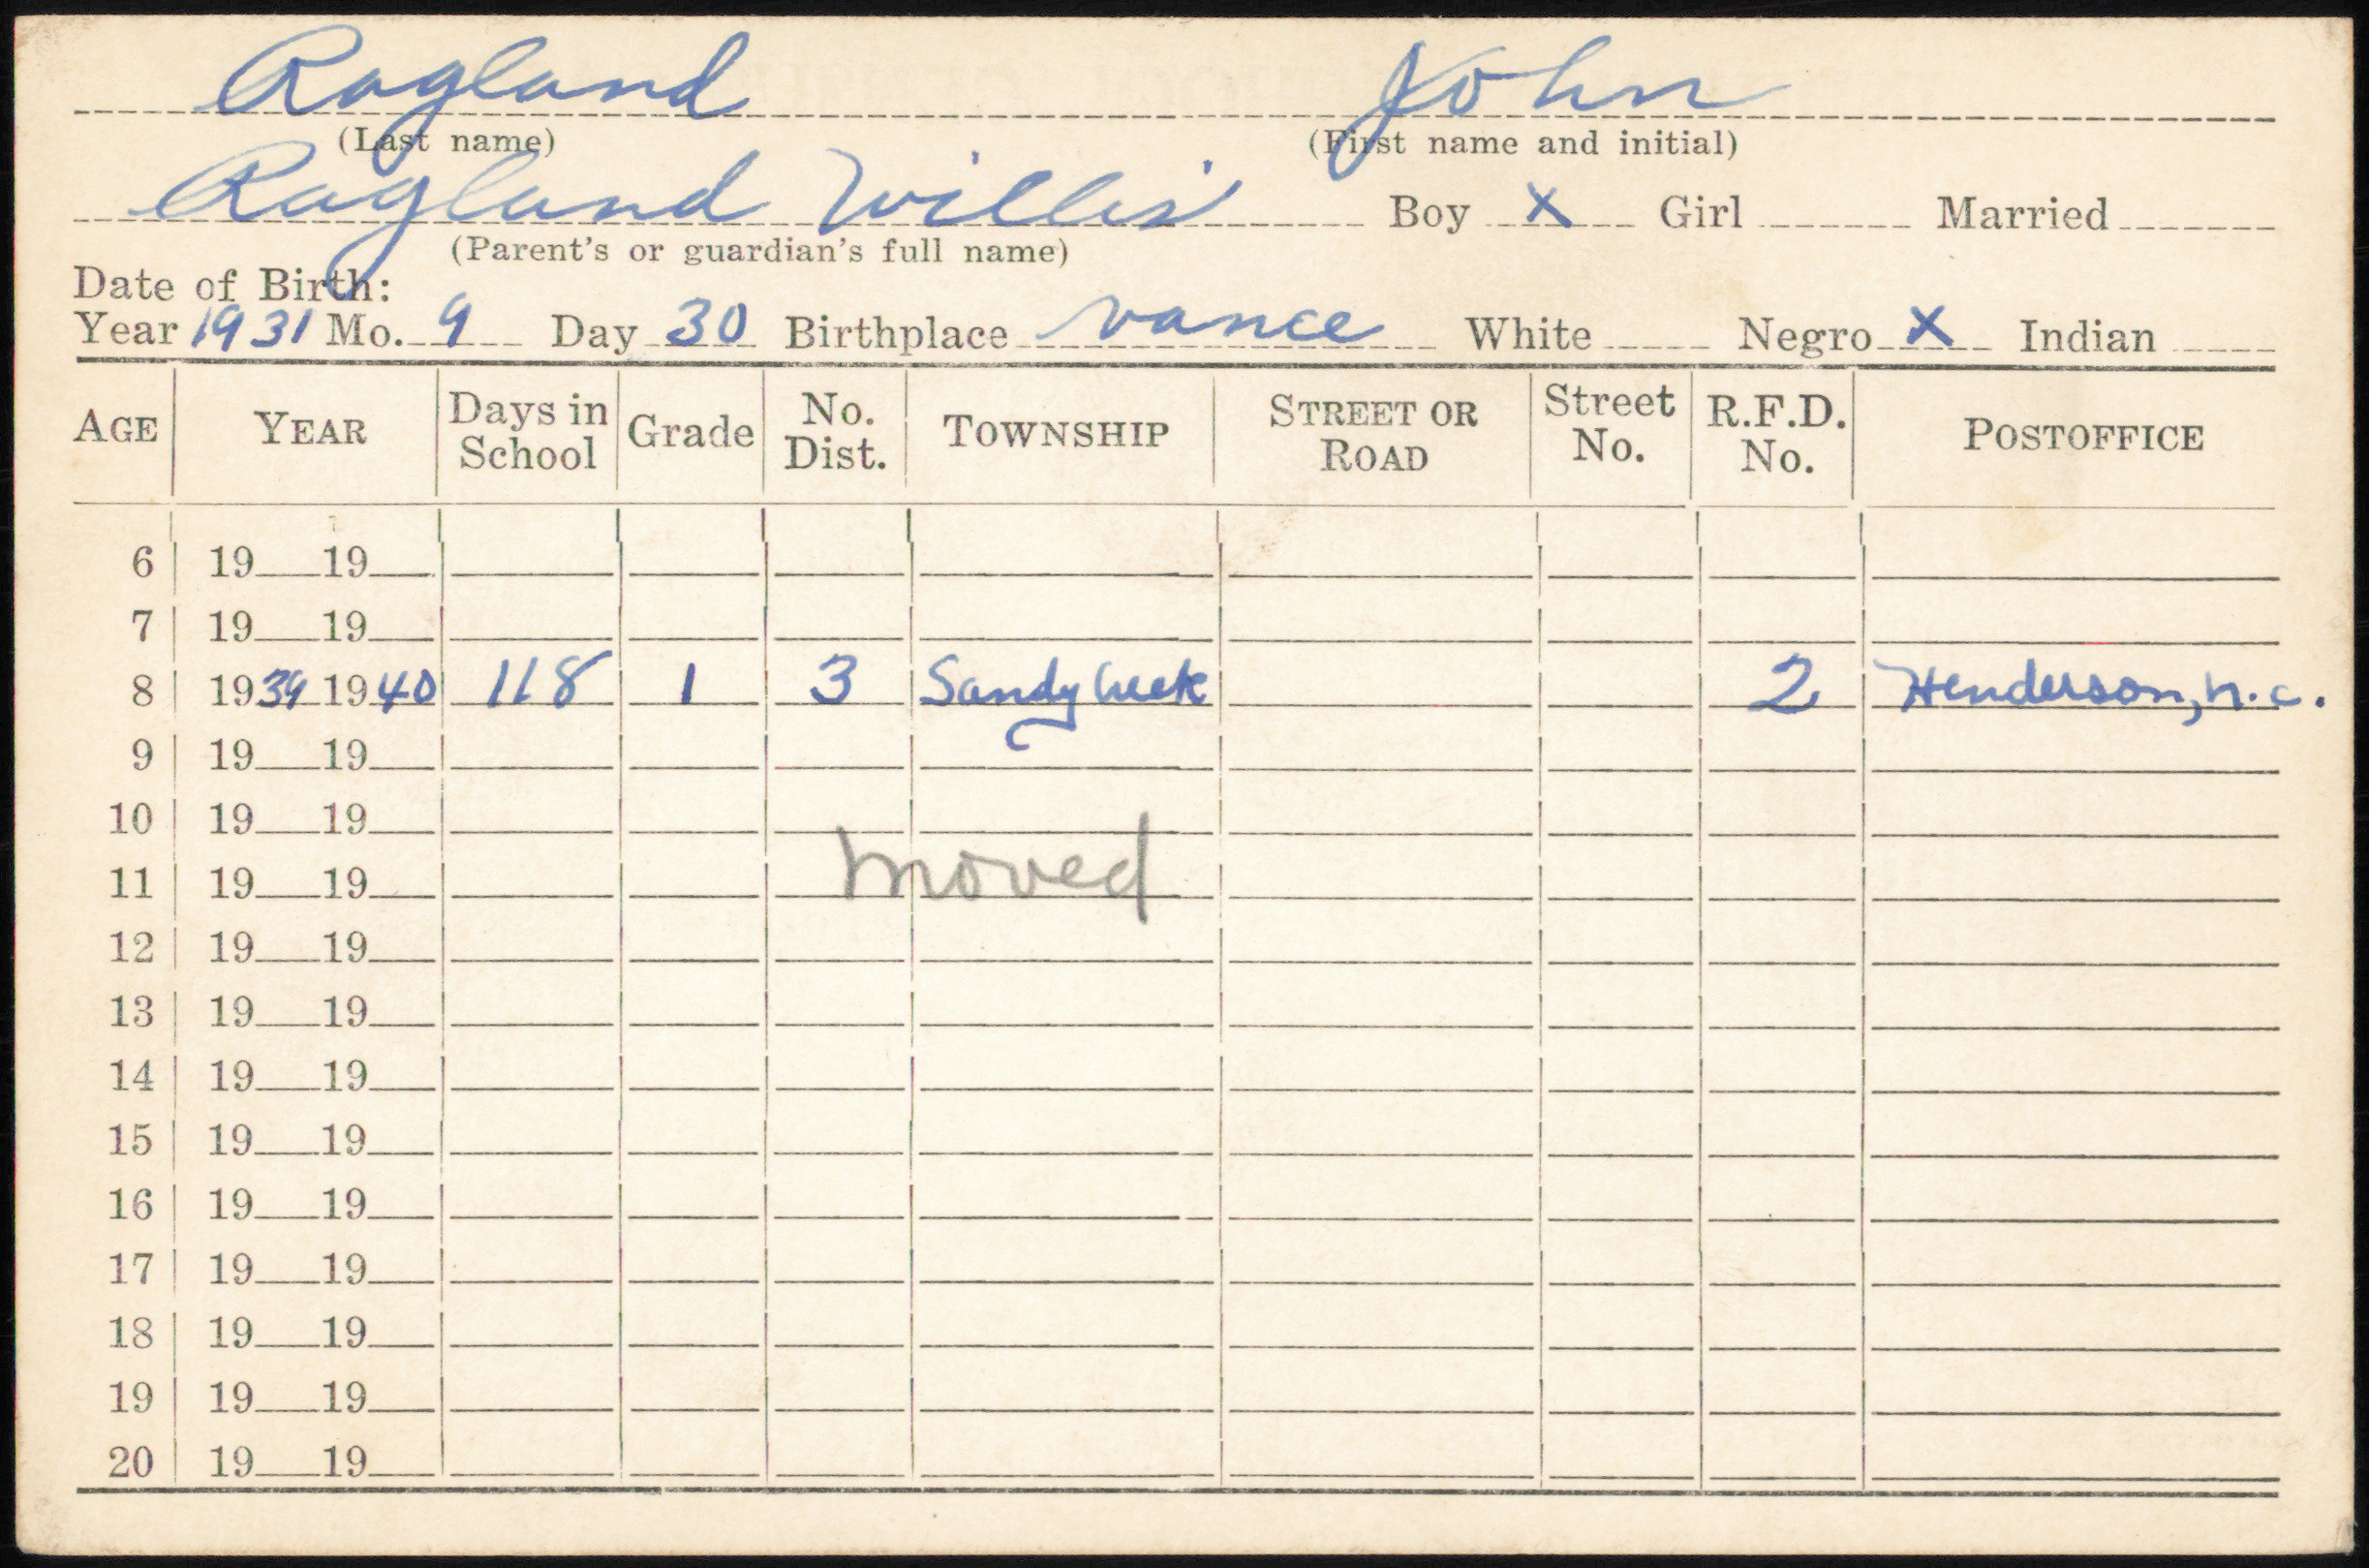 Ragland John
(Last name) (First name and initial)
Ragland Willis Boy X Girl Married
(Parent's or guardian's full name)
Date of Birth:
Year 1931 Mo. 9 Day 30 Birthplace vance White Negro X Indian
AGE YEAR Days in School Grade No. Dist. TOWNSHIP STREET OR ROAD Street No. R.F.D. No. POSTOFFICE
6 19 19
7 19 19
8 1939 1940 118 1 3 Sandy Creek 2 Henderson, n.c.
9 19 19
10 19 19
moved
11 19 19
12 19 19
13 19 19
14 19 19
15 19 19
16 19 19
17 19 19
18 19 19
19 19 19
20 19 19